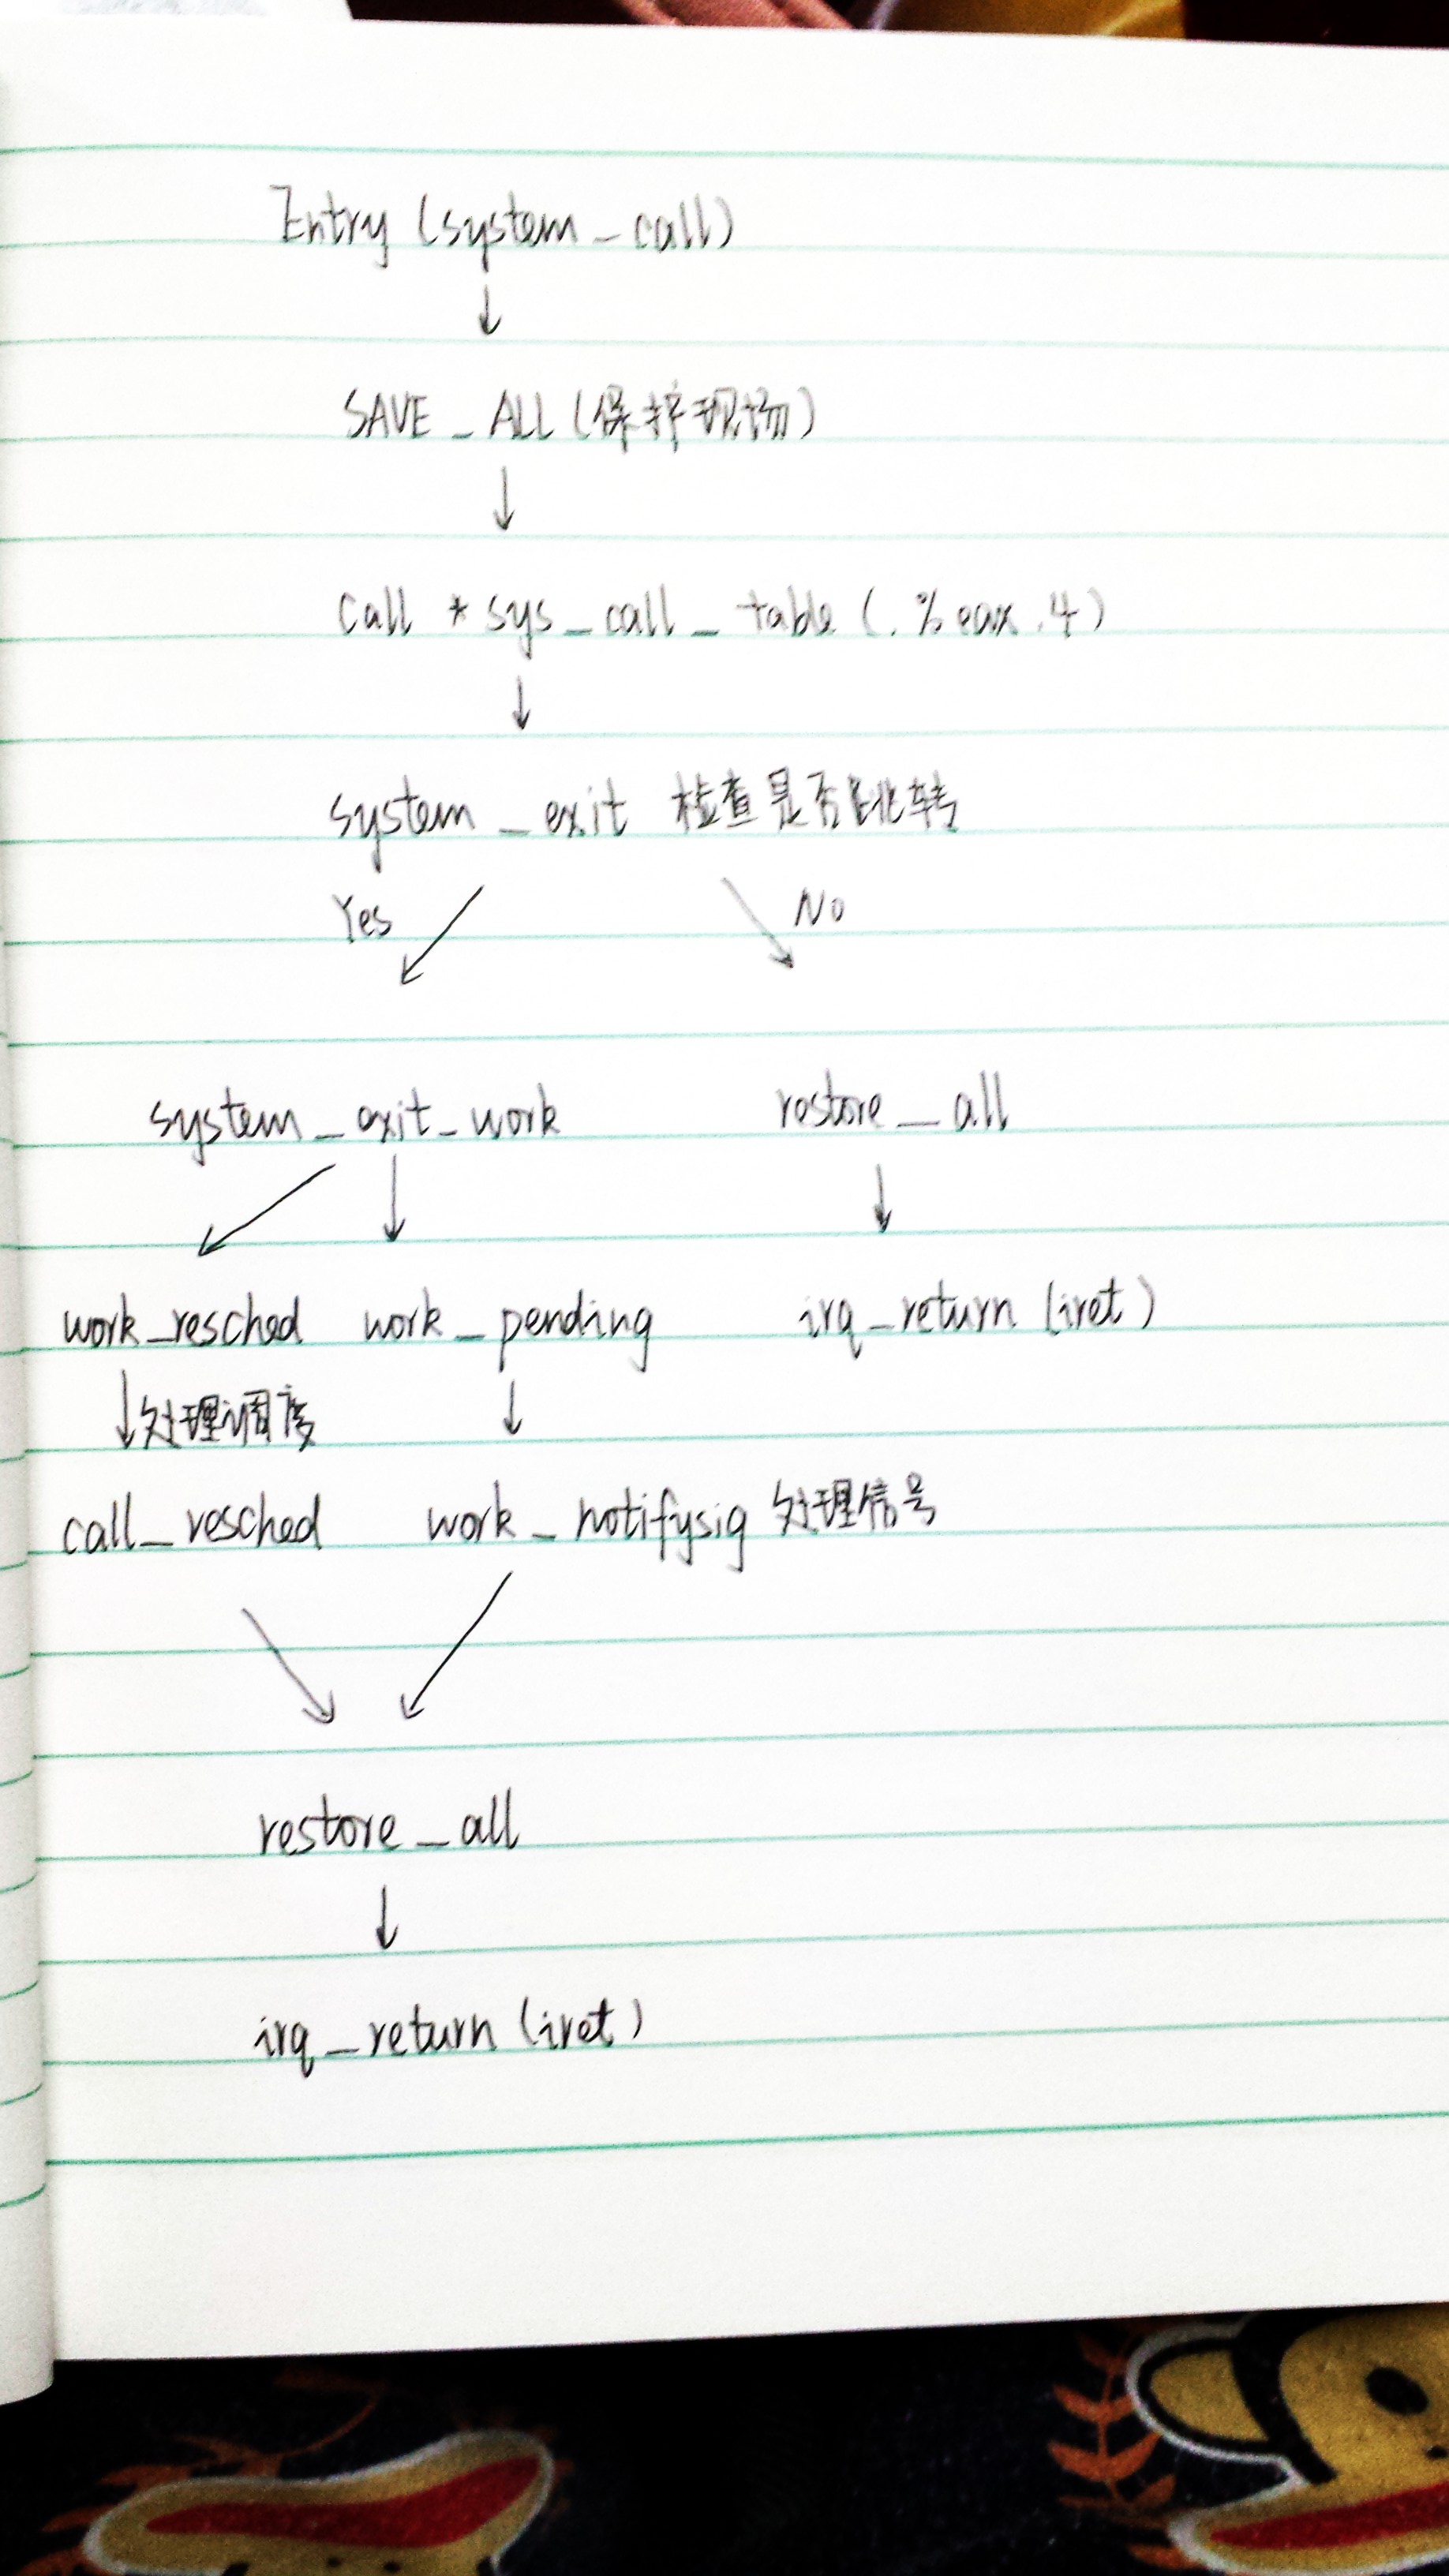 Entry (system_call)
↓
SAVE_ALL (保护现场)
↓
call *sys_call_table (.%eax.4)
↓
system_exit 检查是否跳转
Yes No
system_exit_work restore_all
work_resched work_pending irq_return (iret)
处理调度
call_resched work_notifysig 处理信号
restore_all
↓
irq_return (iret)